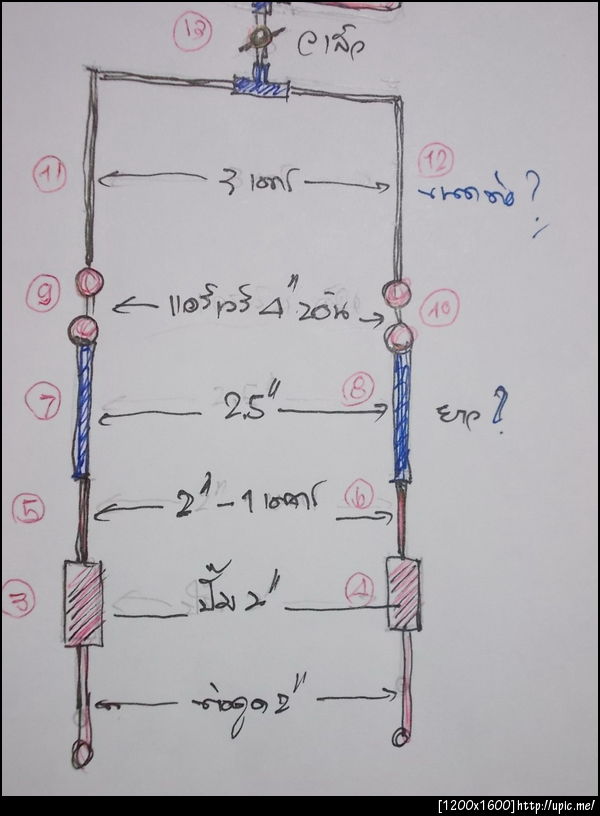 13 วาล์ว
11 3 เมตร 12
ขนาดท่อ?
9 แอร์แวร์ 4" 2อัน 10
7 2.5" 8 ยาว?
5 2" - 1 เมตร 6
3 ปั๊ม 2" 4
ท่อดูด 2"
[1200x1600]http://upic.me/